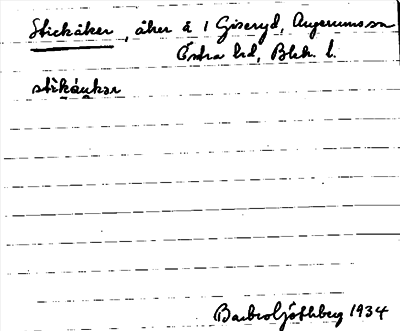 Stickåker, åker å 1 Giseryd, Augerums sn
Östra hd, Blek. l.
sti̇̀kåukər
Barbro Sjöthberg 1934